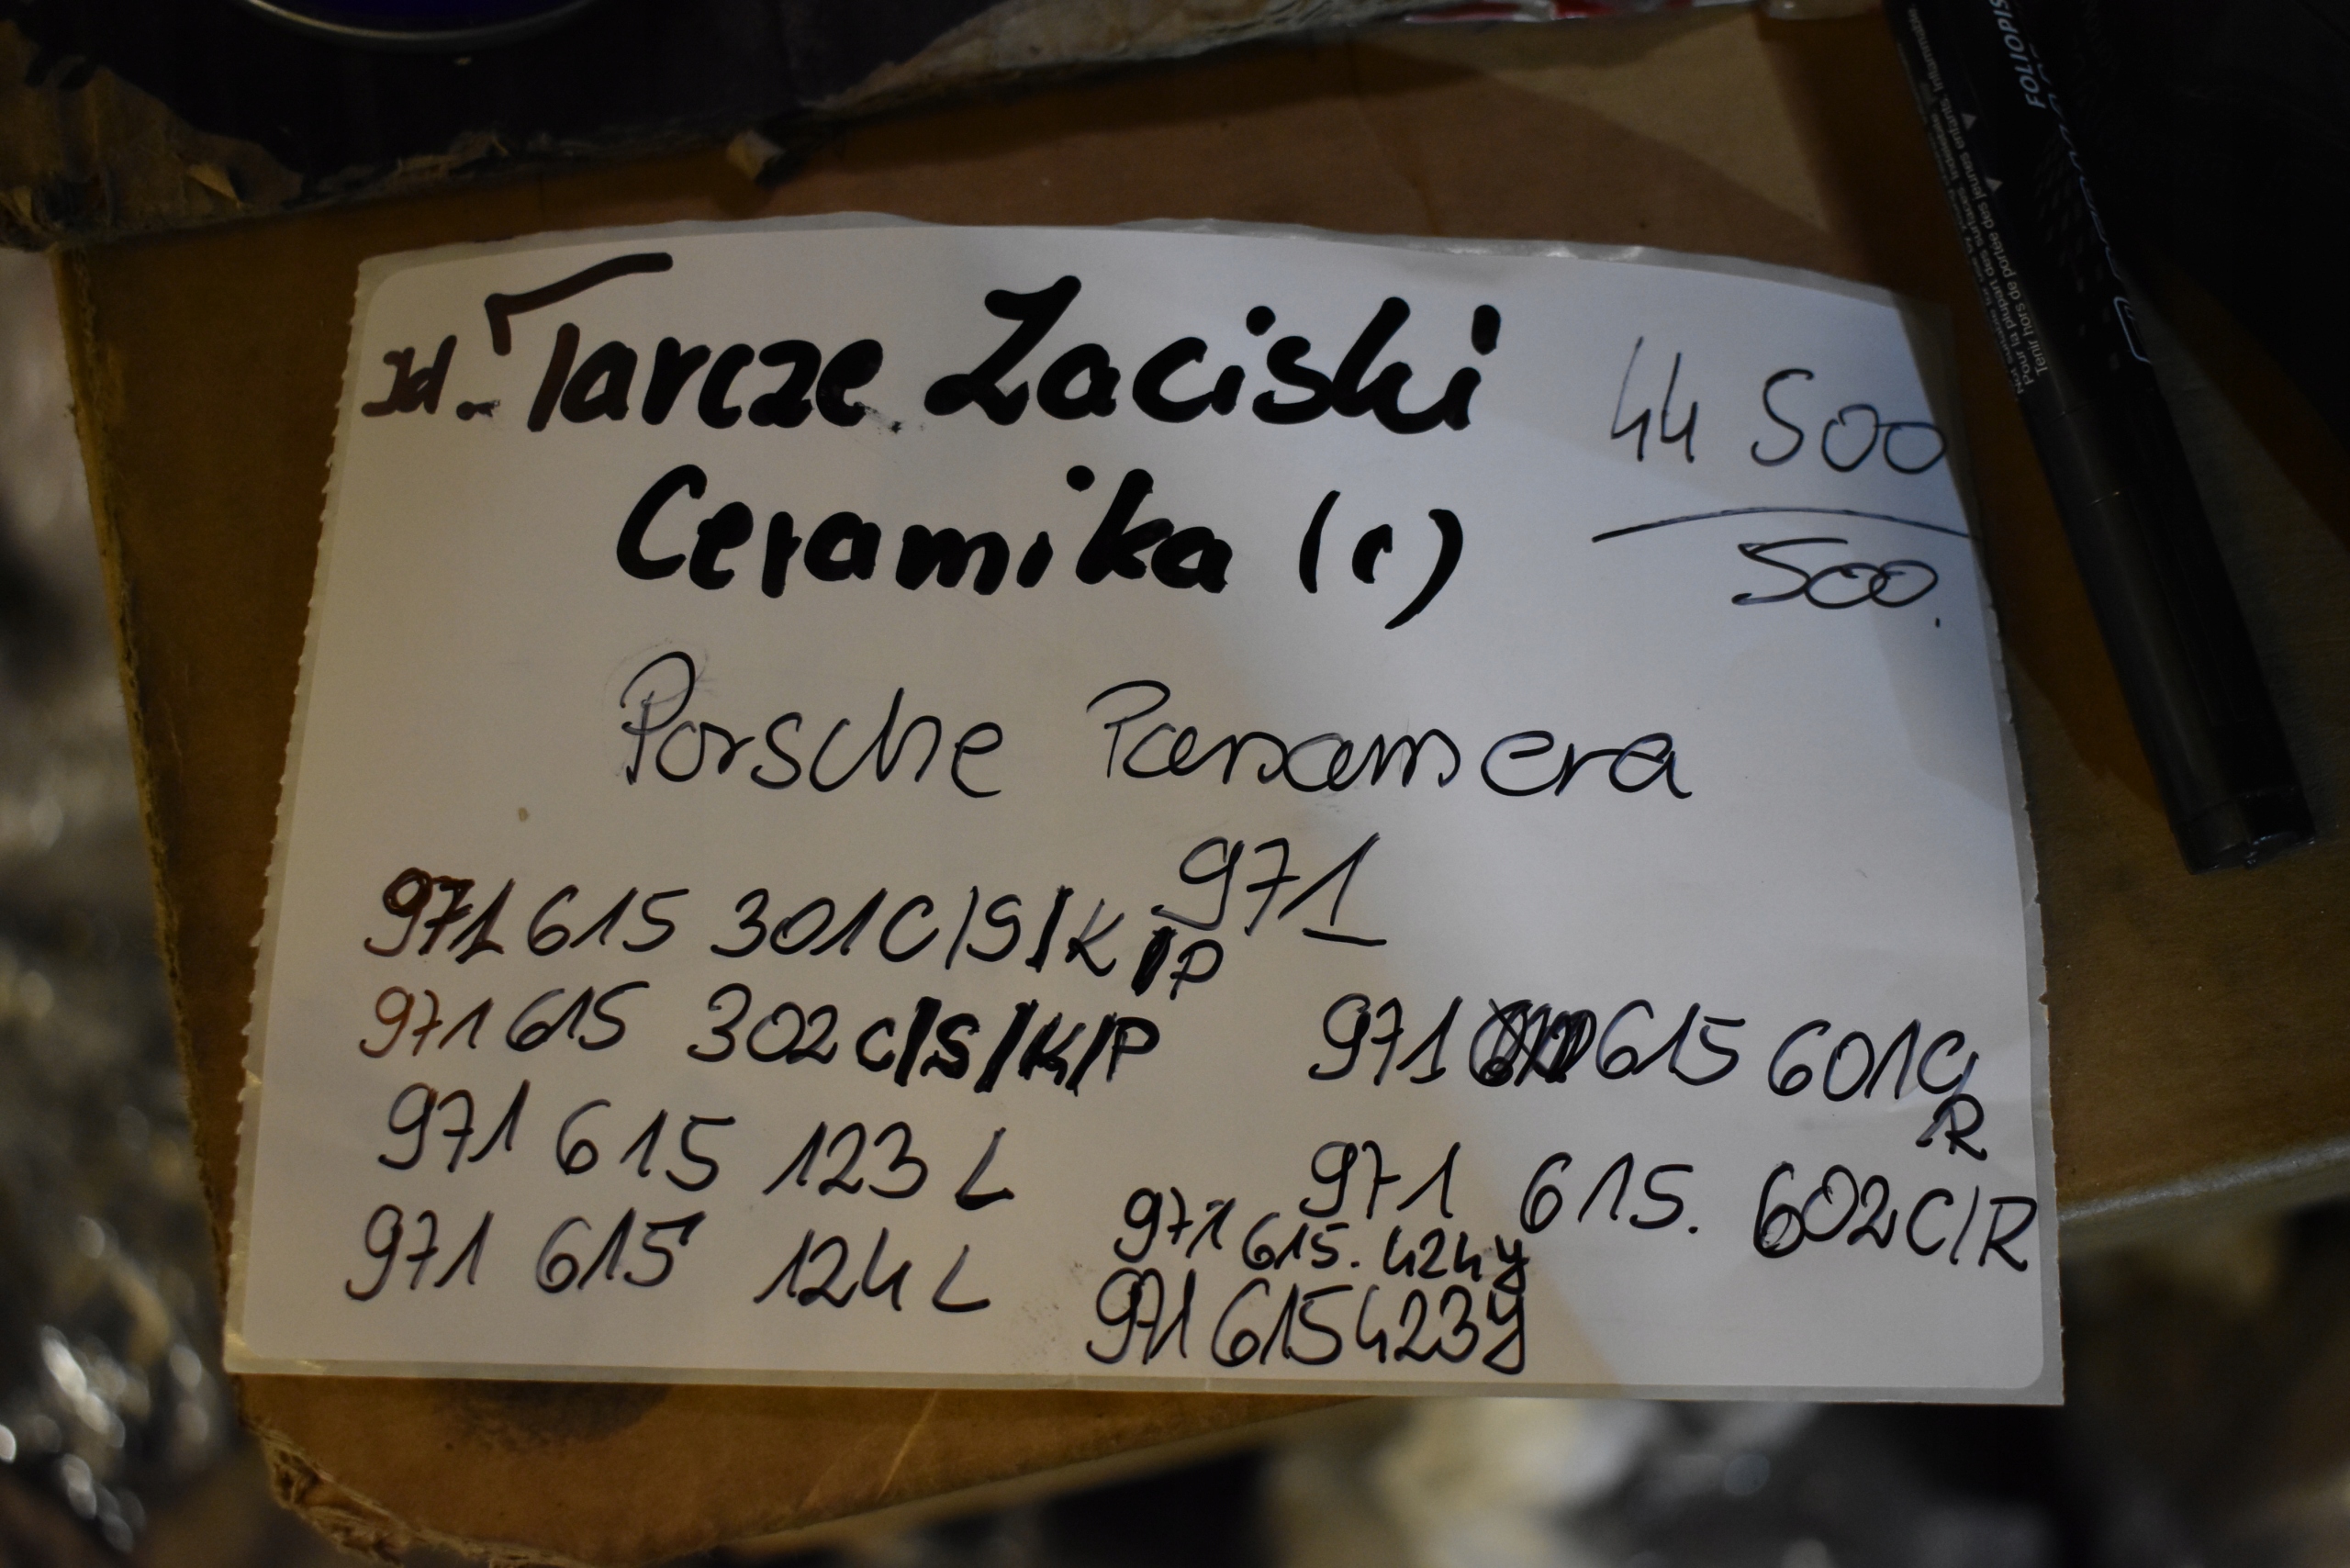 Jd. Tarcze Zaciski
44 500
Ceramika (c)
500.
Porsche Panamera
971
971 615 301C/S/K/P
971 615 302C/S/K/P
971 615 601C/
R
971 615 123 L
971 615. 602C/R
971 615 124 L
971 615. 424y
971 615 423y
FOLIOPIS
Tenir hors de portée des jeunes enfants.
Pour la plupart des surfaces.